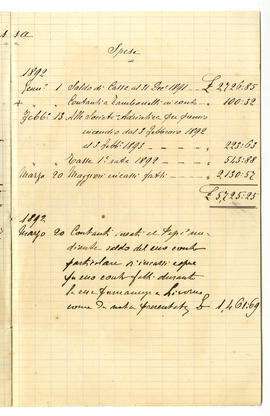 ssa
Spese
1892
Genn° 1 Saldo di Cassa al 31 Dbre 1891 — £ 2726.85
+ " Contanti a Zamboncelli in conto — " 100.32
Febb° 13 Alla Società Adriatica per premio
incendio dal 3 Febbraio 1892
al 3 febb° 1893 — " 223.63
" " Tassa 1a rata 1892 — " 543.88
Marzo 20 Maggiori incassi fatti — " 2,130.57
£ 5,725.25
1892
Marzo 20 Contanti
saldo del suo conto
particolare di incassi
in suo conto fatti durante
la sua permanenza a Livorno
come da nota presentata £ 1,461.69